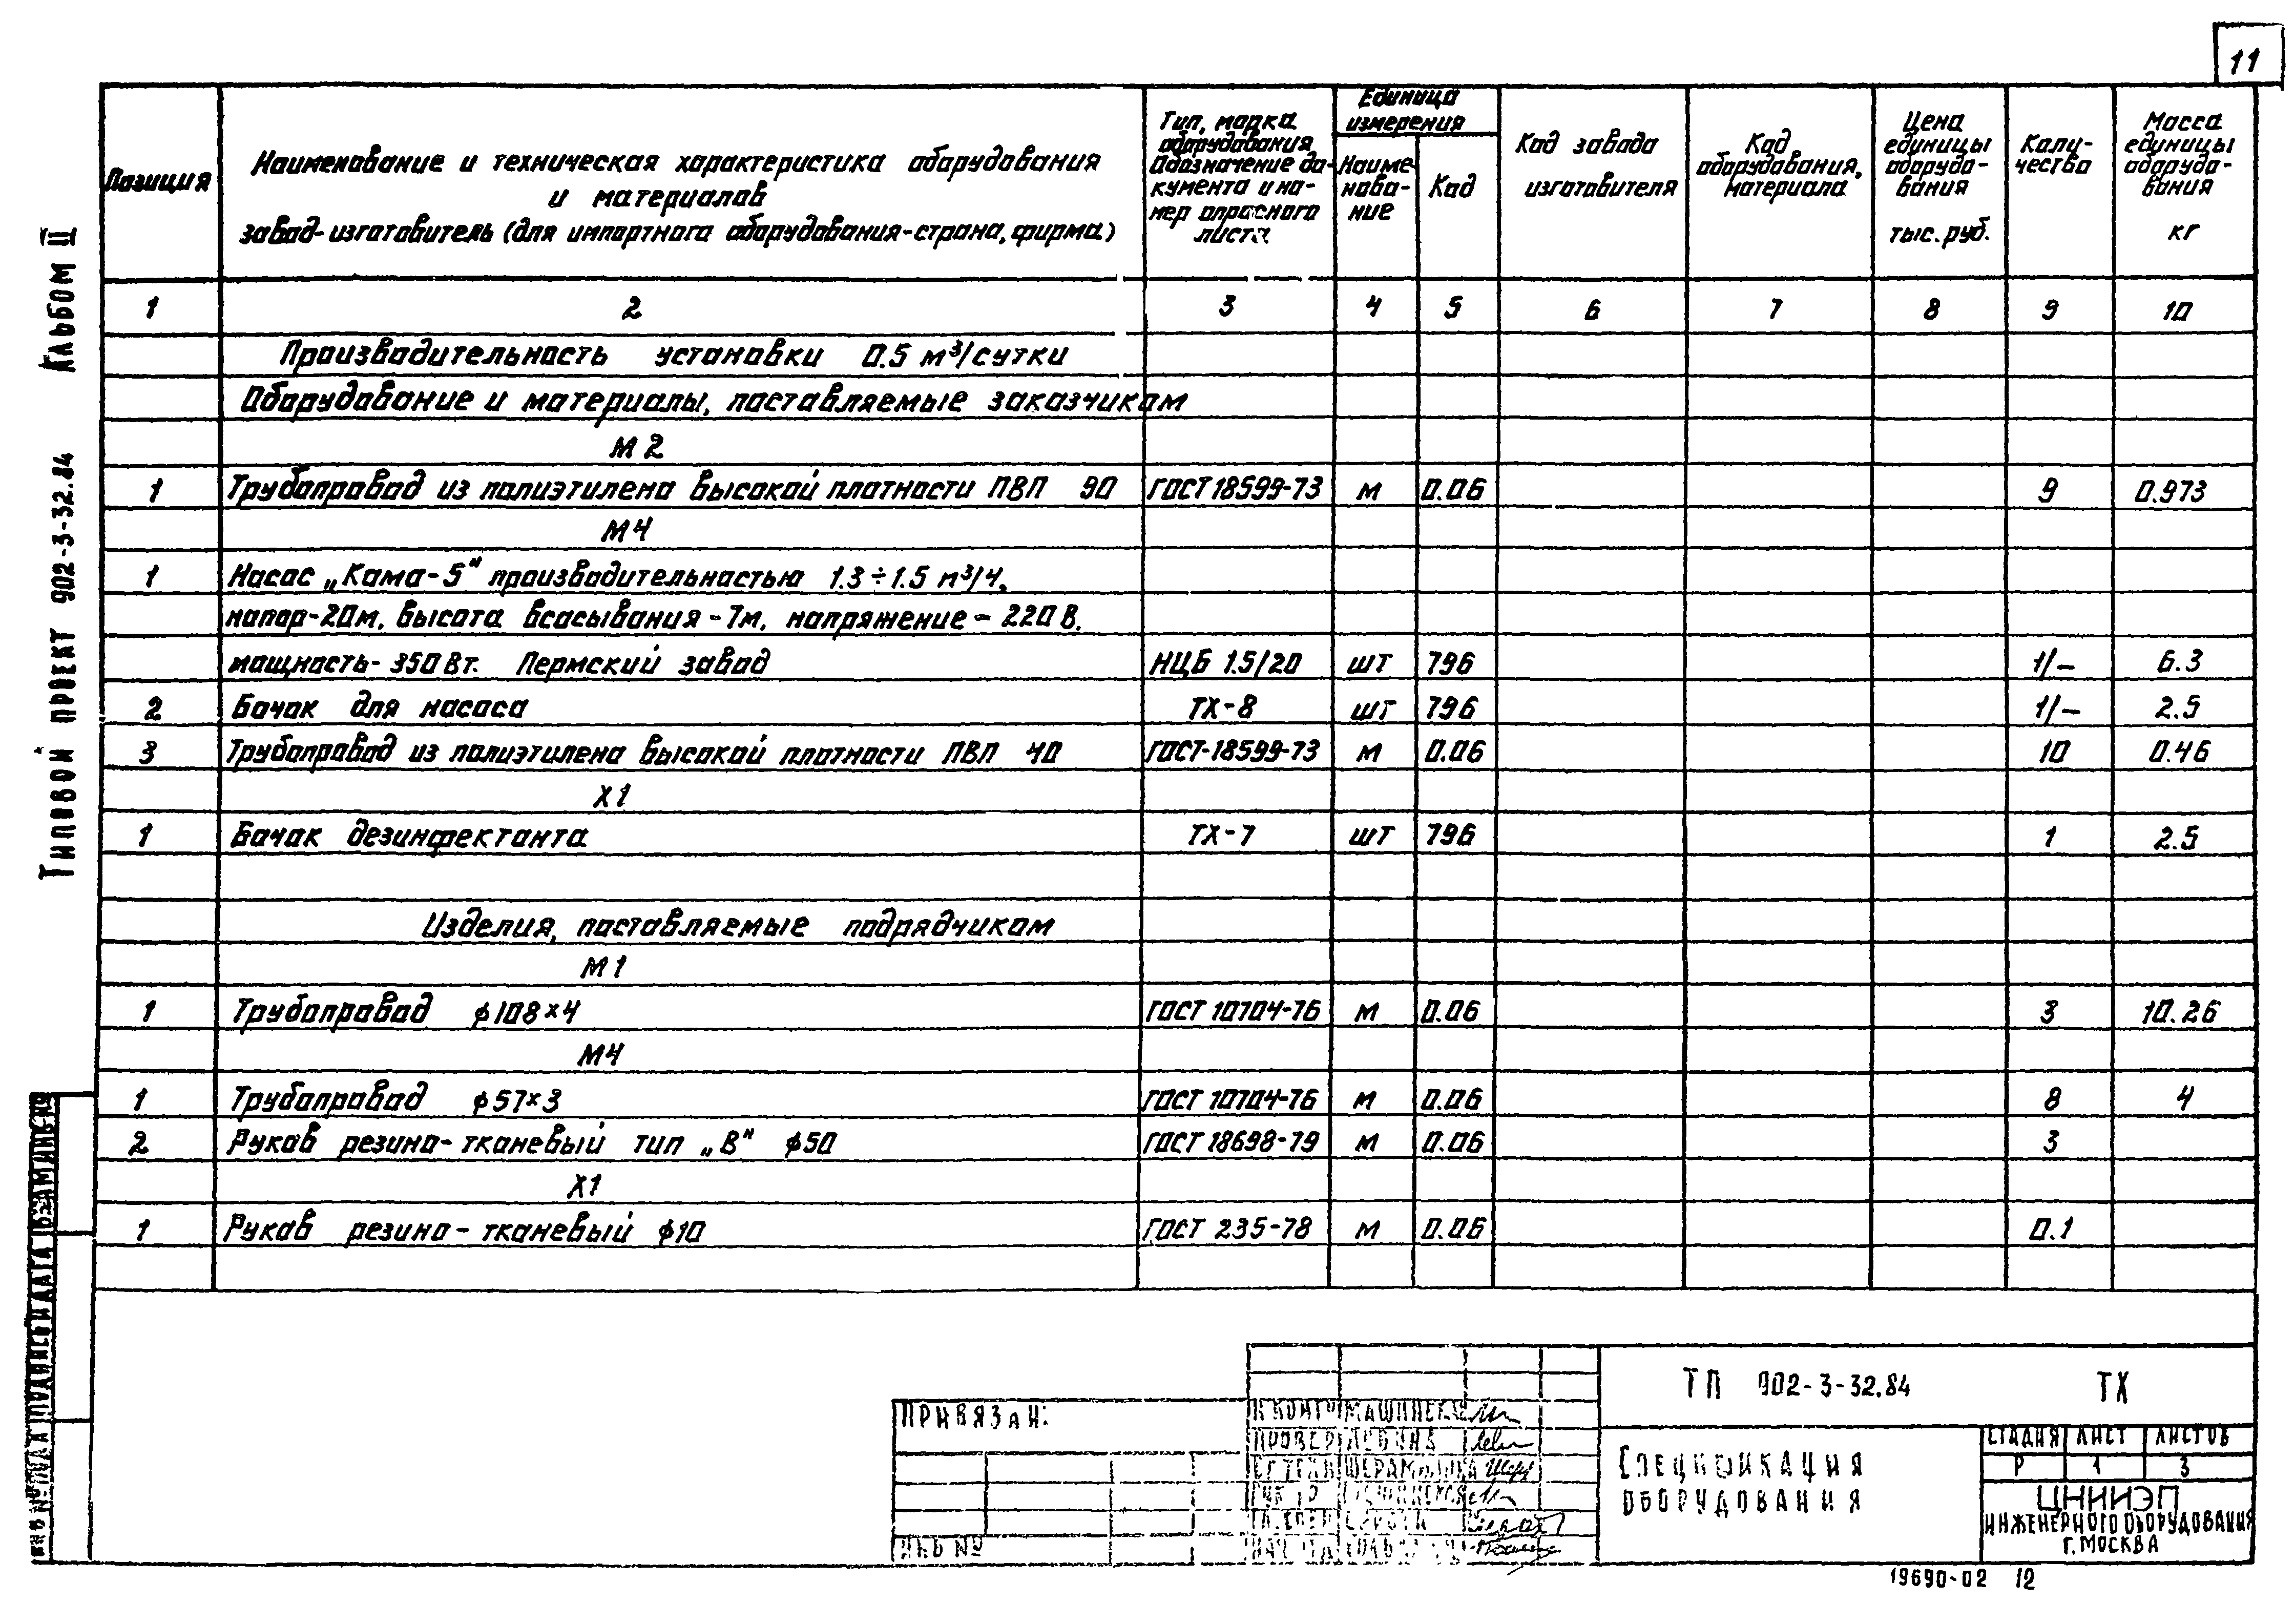 11
Позиция
Наименование и техническая характеристика оборудования
и материалов
завод-изготовитель (для импортного оборудования-страна, фирма)
Тип, марка
оборудования
Обозначение до-
кумента и но-
мер опросного
листа
Единица
измерения
Наиме
нова-
ние
Код
Код завода
изготовителя
Код
оборудования,
материала
Цена
единицы
оборудо-
вания
тыс. руб.
Коли-
чество
Масса
единицы
оборудо-
вания
кг
1 2 3 4 5 6 7 8 9 10
Производительность установки 0.5 м³/сутки
Оборудование и материалы, поставляемые заказчиком
М 2
1 Трубопровод из полиэтилена высокой плотности ПВП 90 ГОСТ 18599-73 м 0.06 9 0.973
М4
1 Насос „Кама-5" производительностью 1.3÷1.5 м³/ч,
напор-20м. высота всасывания-7м, напряжение-220 В.
мощность-350 Вт. Пермский завод НЦБ 1.5/20 шт 796 1/- 6.3
2 Бачок для насоса ТХ-8 шт 796 1/- 2.5
3 Трубопровод из полиэтилена высокой плотности ПВП 40 ГОСТ-18599-73 м 0.06 10 0.46
Х1
1 Бачок дезинфектанта ТХ-7 шт 796 1 2.5
Изделия, поставляемые подрядчиком
М1
1 Трубопровод ф108×4 ГОСТ 10704-76 м 0.06 3 10.26
М4
1 Трубопровод ф57×3 ГОСТ 10704-76 м 0.06 8 4
2 Рукав резино-тканевый тип „В" ф50 ГОСТ 18698-79 м 0.06 3
Х1
1 Рукав резино-тканевый ф10 ГОСТ 235-78 м 0.06 0.1
Типовой проект 902-3-32.84 Альбом II
Привязан:
Инв №
Н контр
Провер
ТП 902-3-32.84 ТХ
Спецификация
оборудования
Стадия Лист Листов
Р 1 3
ЦНИИЭП
инженерного оборудования
г. Москва
19690-02 12